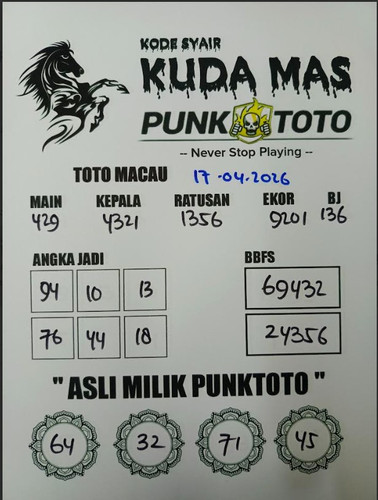 KODE SYAIR
KUDA MAS
PUNK TOTO
-- Never Stop Playing --
TOTO MACAU 17-04-2026
MAIN KEPALA RATUSAN EKOR BJ
429 4321 1356 9201 136
ANGKA JADI BBFS
94 10 13 69432
76 44 18 24356
" ASLI MILIK PUNKTOTO "
64 32 71 45